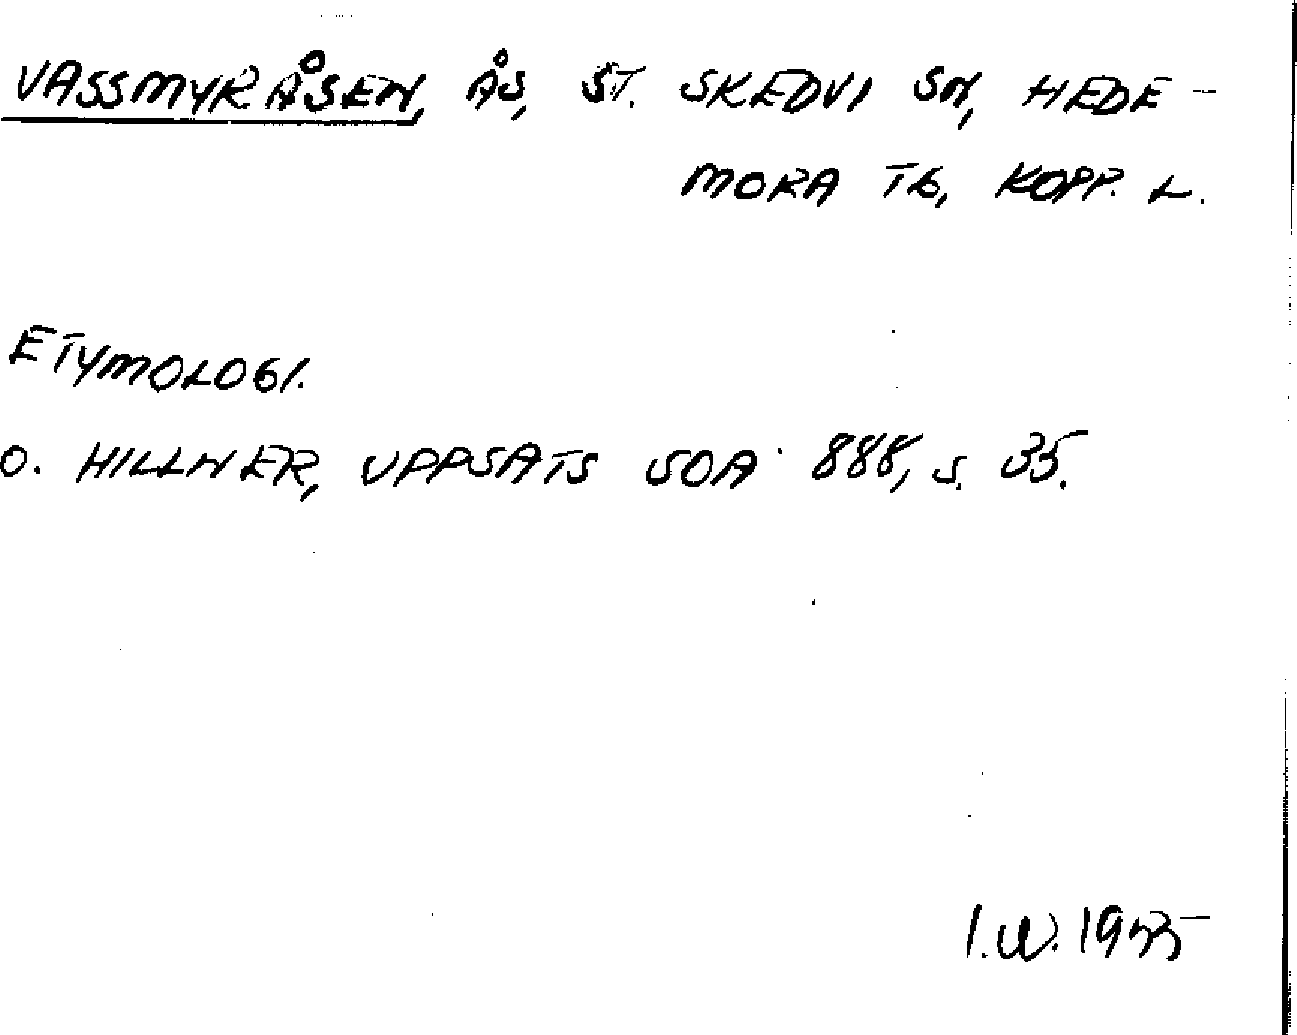 VASSMYRÅSEN, ÅS, ST. SKEDVI SN, HEDE-
MORA TG, KOPP. L.
ETYMOLOGI.
O. HILLNER, UPPSATS SOA 888, S. 35.
I.W. 1955